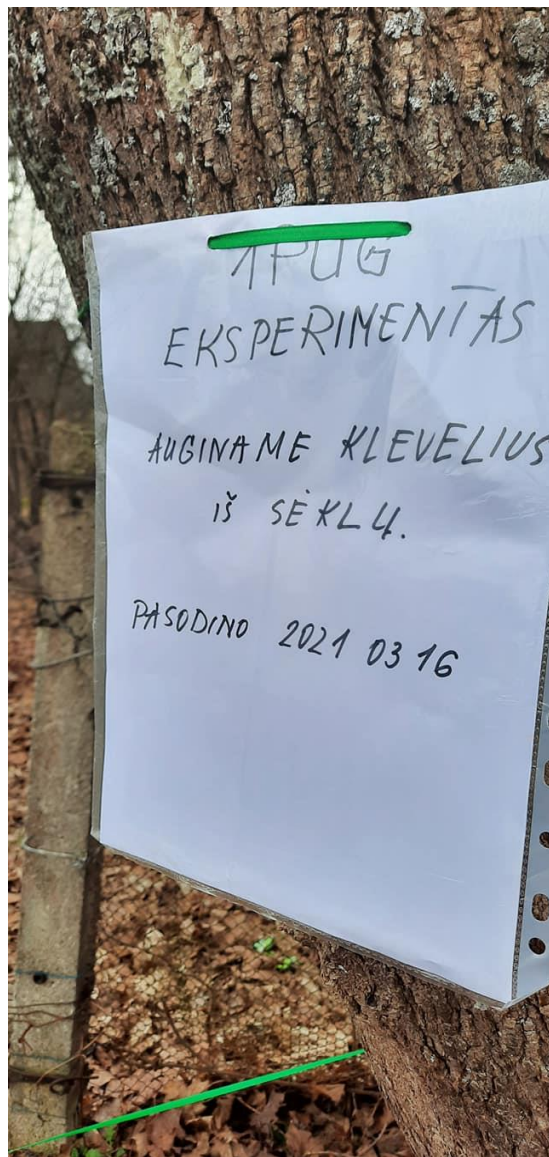 1PUG
EKSPERIMENTAS
AUGINAME KLEVELIUS
IŠ SĖKLŲ.
PASODINO 2021 03 16